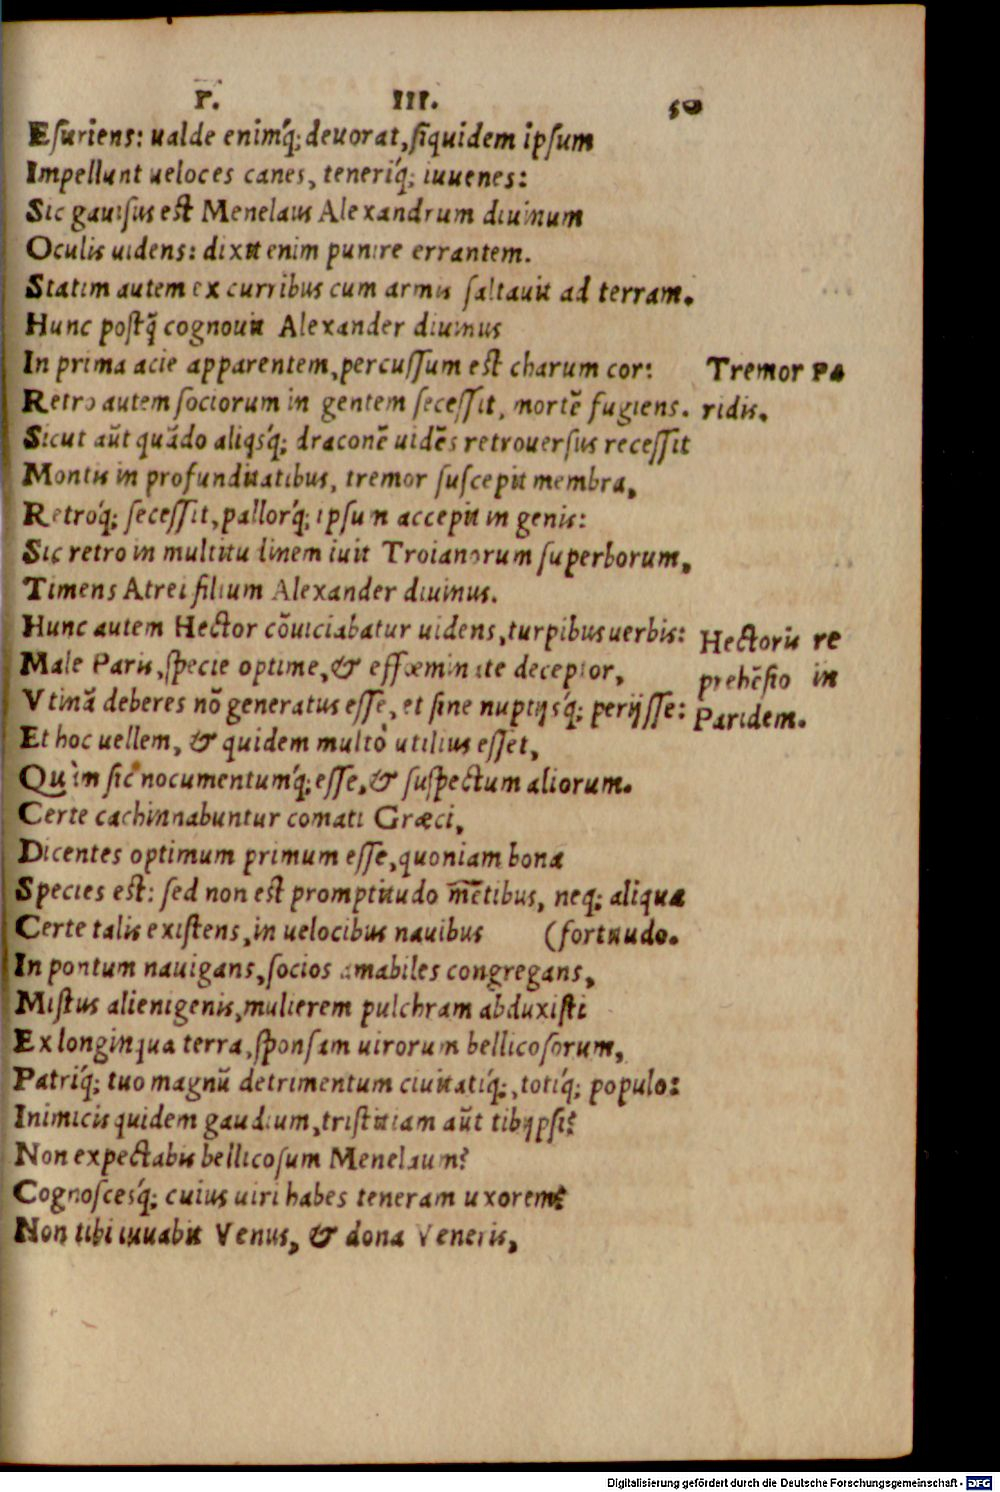 Γ. III. 50
Esuriens: ualde enimq́; deuorat, siquidem ipsum
Impellunt ueloces canes, teneriq́; iuuenes:
Sic gauisus est Menelaus Alexandrum diuinum
Oculis uidens: dixit enim punire errantem.
Statim autem ex curribus cum armis saltauit ad terram.
Hunc postq̃ cognouit Alexander diuinus
In prima acie apparentem, percussum est charum cor:
Tremor Pa
Retro autem sociorum in gentem secessit, mortẽ fugiens.
ridis.
Sicut aũt quãdo aliqsq́; draconẽ uidẽs retrouersus recessit
Montis in profunditatibus, tremor suscepit membra,
Retroq́; secessit, pallorq́; ipsum accepit in genis:
Sic retro in multitudinem iuit Troianorum superborum,
Timens Atrei filium Alexander diuinus.
Hunc autem Hector cõuiciabatur uidens, turpibus uerbis:
Hectoris re
Male Paris, specie optime, & effœminate deceptor,
prehẽsio in
Vtinã deberes nõ generatus esse, et sine nuptijsq́; perijsse:
Paridem.
Et hoc uellem, & quidem multò utilius esset,
Quàm sic nocumentumq́; esse, & suspectum aliorum.
Certe cachinnabuntur comati Græci,
Dicentes optimum primum esse, quoniam bona
Species est: sed non est promptitudo mẽtibus, neq; aliqua
Certe talis existens, in uelocibus nauibus (fortitudo.
In pontum nauigans, socios amabiles congregans,
Mistus alienigenis, mulierem pulchram abduxisti
Ex longinqua terra, sponsam uirorum bellicosorum,
Patriq́; tuo magnũ detrimentum ciuitatiq́;, totiq́; populo:
Inimicis quidem gaudium, tristitiam aũt tibijpsi?
Non expectabis bellicosum Menelaum?
Cognoscesq́; cuius uiri habes teneram uxorem?
Non tibi iuuabit Venus, & dona Veneris,
Digitalisierung gefördert durch die Deutsche Forschungsgemeinschaft - DFG